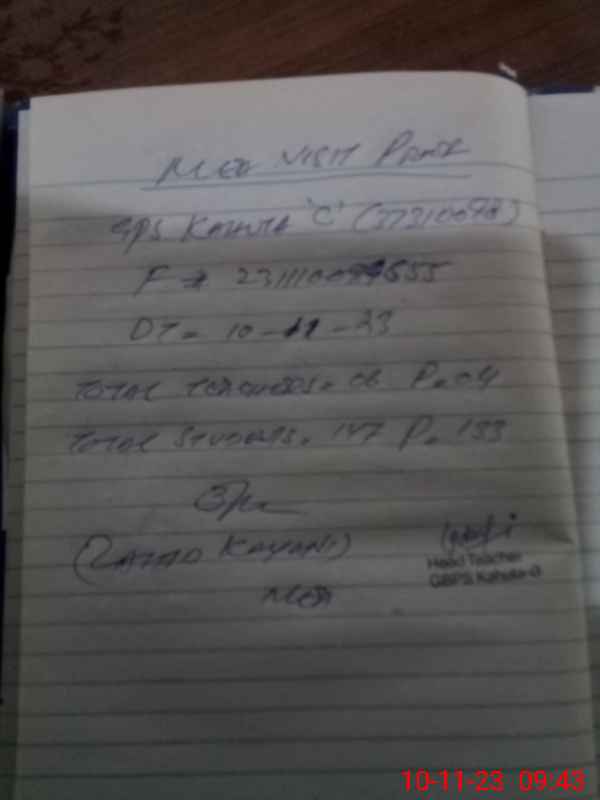 MEA VISIT PROOF
GPS KAHUTA 'C' (37310078)
DT = 10-11-23
TOTAL TEACHERS = 06 P = 04
TOTAL STUDENTS = 147 P = 133
KAYANI)
MEA
Head Teacher
GBPS Kahuta
10-11-23 09:43